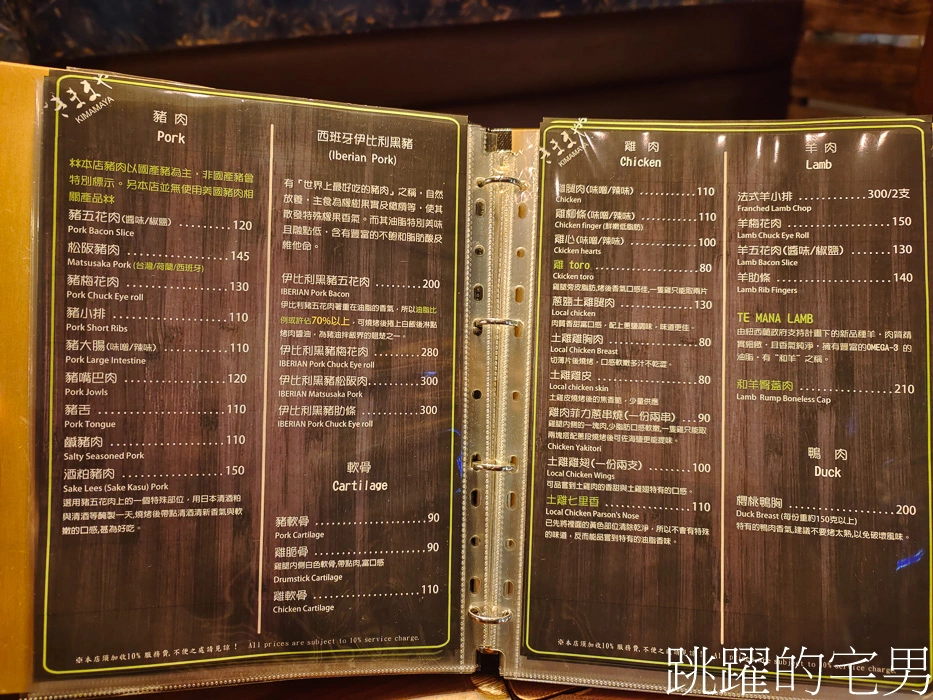 きままや
KIMAMAYA
豬肉
Pork
##本店豬肉以國產豬為主,非國產豬會
特別標示。另本店並無使用美國豬肉相
關產品##
豬五花肉(醬味/椒鹽) 120
Pork Bacon Slice
松阪豬肉 145
Matsusaka Pork (台灣/荷蘭/西班牙)
豬梅花肉 130
Pork Chuck Eye roll
豬小排 110
Pork Short Ribs
豬大腸(味噌/辣味) 110
Pork Large Intestine
豬嘴巴肉 120
Pork Jowls
豬舌 110
Pork Tongue
鹹豬肉 110
Salty Seasoned Pork
酒粕豬肉 150
Sake Lees (Sake Kasu) Pork
選用豬五花肉上的一個特殊部位,用日本清酒粕
與清酒等醃製一天,燒烤後帶點清酒清新香氣與軟
嫩的口感,甚為好吃。
西班牙伊比利黑豬
(Iberian Pork)
有「世界上最好吃的豬肉」之稱,自然
放養,主食為橡樹果實及橄欖等,使其
散發特殊橡果香氣。而其油脂特別美味
且融點低,含有豐富的不飽和脂肪酸及
維他命。
伊比利黑豬五花肉 200
IBERIAN Pork Bacon
伊比利豬五花肉著重在油脂的香氣,所以油脂比
例或許佔70%以上,可燒烤後捲上白飯後淋點
烤肉醬油,為豬油拌飯界的翹楚之一。
伊比利黑豬梅花肉 280
IBERIAN Pork Chuck Eye roll
伊比利黑豬松阪肉 300
IBERIAN Matsusaka Pork
伊比利黑豬肋條 300
IBERIAN Pork Chuck Eye roll
軟骨
Cartilage
豬軟骨 90
Pork Cartilage
雞脆骨 90
雞腿內側白色軟骨,帶點肉,富口感
Drumstick Cartilage
雞軟骨 110
Chicken Cartilage
※本店須加收10% 服務費,不便之處請見諒! All prices are subject to 10% service charge.
きままや
KIMAMAYA
雞肉
Chicken
雞腿肉(味噌/辣味) 110
Chicken
雞柳條(味噌/辣味) 110
Chicken finger (鮮嫩低脂肪)
雞心(味噌/辣味) 100
Chicken hearts
雞 toro 80
Chicken toro
雞腿旁皮脂肪,烤後香氣口感佳,一隻雞只能取兩片
蔥鹽土雞腿肉 130
Local chicken
肉質香甜富口感,配上蔥鹽調味,味道更佳。
土雞雞胸肉 80
Local Chicken Breast
切薄片後燒烤,口感軟嫩多汁不乾澀。
土雞雞皮 80
Local chicken skin
土雞皮燒烤後的焦香脆,少量供應
雞肉菲力蔥串燒(一份兩串) 90
雞腿內側的一塊肉,少脂肪口感軟嫩,一隻雞只能取
兩塊搭配蔥段燒烤後可佐海鹽更能提味。
Chicken Yakitori
土雞雞翅(一份兩支) 100
Local Chicken Wings
可品嘗到土雞肉的香甜與土雞翅特有的口感。
土雞七里香 110
Local Chicken Parson's Nose
已先將裡面的黃色部位清除乾淨,所以不會有特殊
的味道,反而能品嘗到特有的油脂香味。
羊肉
Lamb
法式羊小排 300/2支
Franched Lamb Chop
羊梅花肉 150
Lamb Chuck Eye Roll
羊五花肉(醬味/椒鹽) 130
Lamb Bacon Slice
羊肋條 140
Lamb Rib Fingers
TE MANA LAMB
由紐西蘭政府支持計畫下的新品種羊,肉質精
實細緻,且香氣純淨,擁有豐富的OMEGA-3 的
油脂,有 "和羊" 之稱。
和羊臀蓋肉 210
Lamb Rump Boneless Cap
鴨肉
Duck
櫻桃鴨胸 200
Duck Breast (每份重約150克以上)
特有的鴨肉香氣,建議不要烤太熟,以免破壞風味。
※本店須加收10% 服務費,不便之處 subject to 10% service charge.
跳躍的宅男